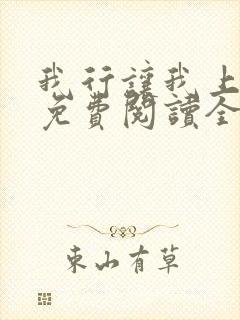 我行讓我上
免費閱讀全
東山有草